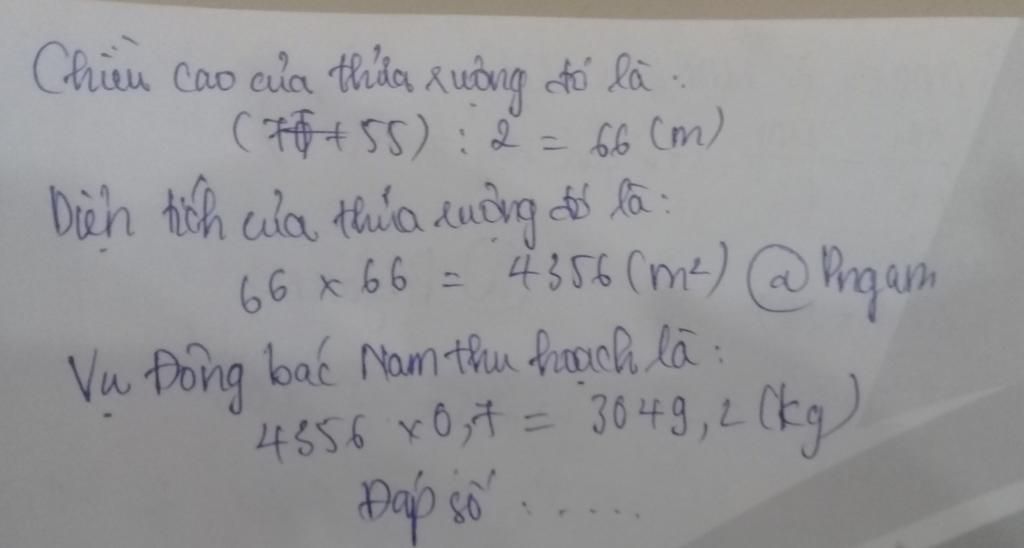 Chiều cao của thửa ruộng đó là:
( + 55) : 2 = 66 (m)
Diện tích của thửa ruộng đó là:
66 × 66 = 4356 (m²) @Pngam
Vụ Đông bác Nam thu hoạch là:
4356 × 0,7 = 3049,2 (kg)
Đáp số : .....